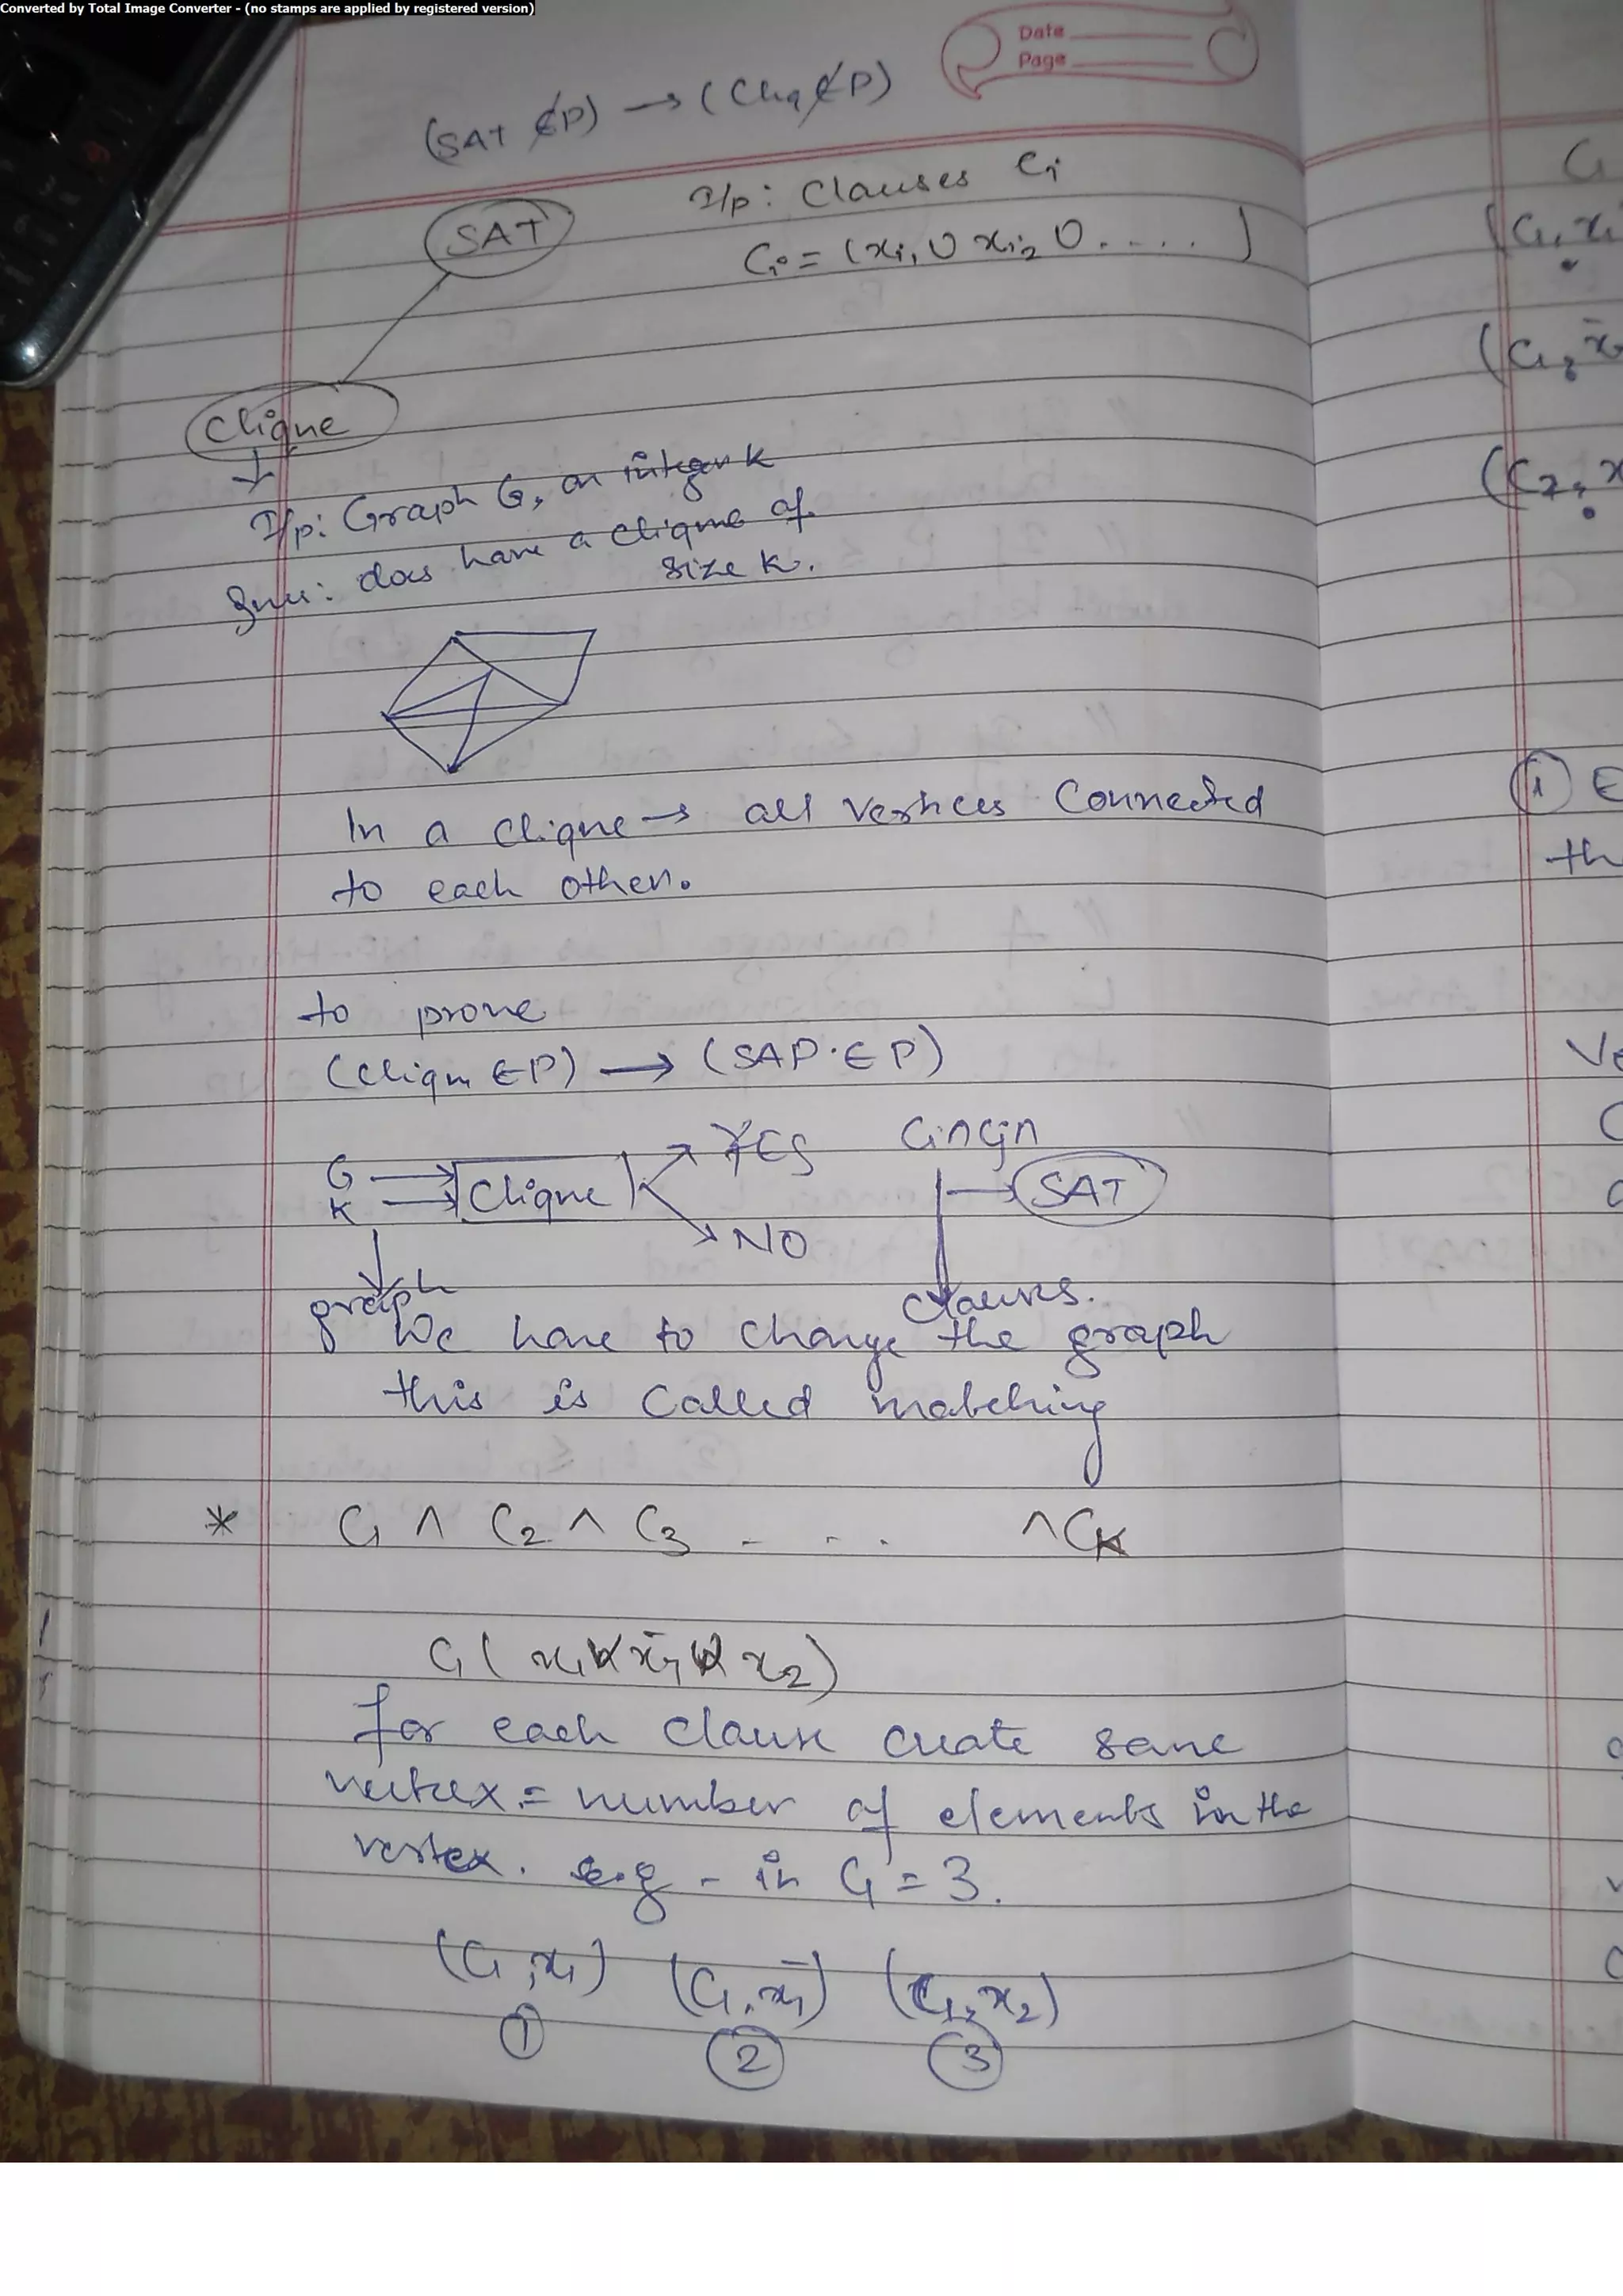 Converted by Total Image Converter - (no stamps are applied by registered version)
Date
Page
(SAT ∉P) → (Cliq ∉P)
SAT
I/p: Clauses Ci
Ci = (xi1 ∪ xi2 ∪ ..... )
Clique
I/p: Graph G, an integer k
Ques: does have a clique of
size k.
In a clique → all vertices Connected
to each other.
to prove
(Cliqu ∈P) → (SAP ∈ P)
G
K
Clique
YES
NO
Ci∩Cj∩
SAT
graph
Clauses.
We have to change the graph
this is called matching
* C1 ∧ C2 ∧ C3 - . . . ∧ CK
C1 ( x1 ∨ x̄1 ∨ x2)
for each clause create same
vertex = number of elements in the
vertex. e.g - in C1 = 3.
(C1, x1) (C1, x̄1) (C1, x2)
① ② ③
(C1, x1
(C1, x̄
(C2, x
① E
th